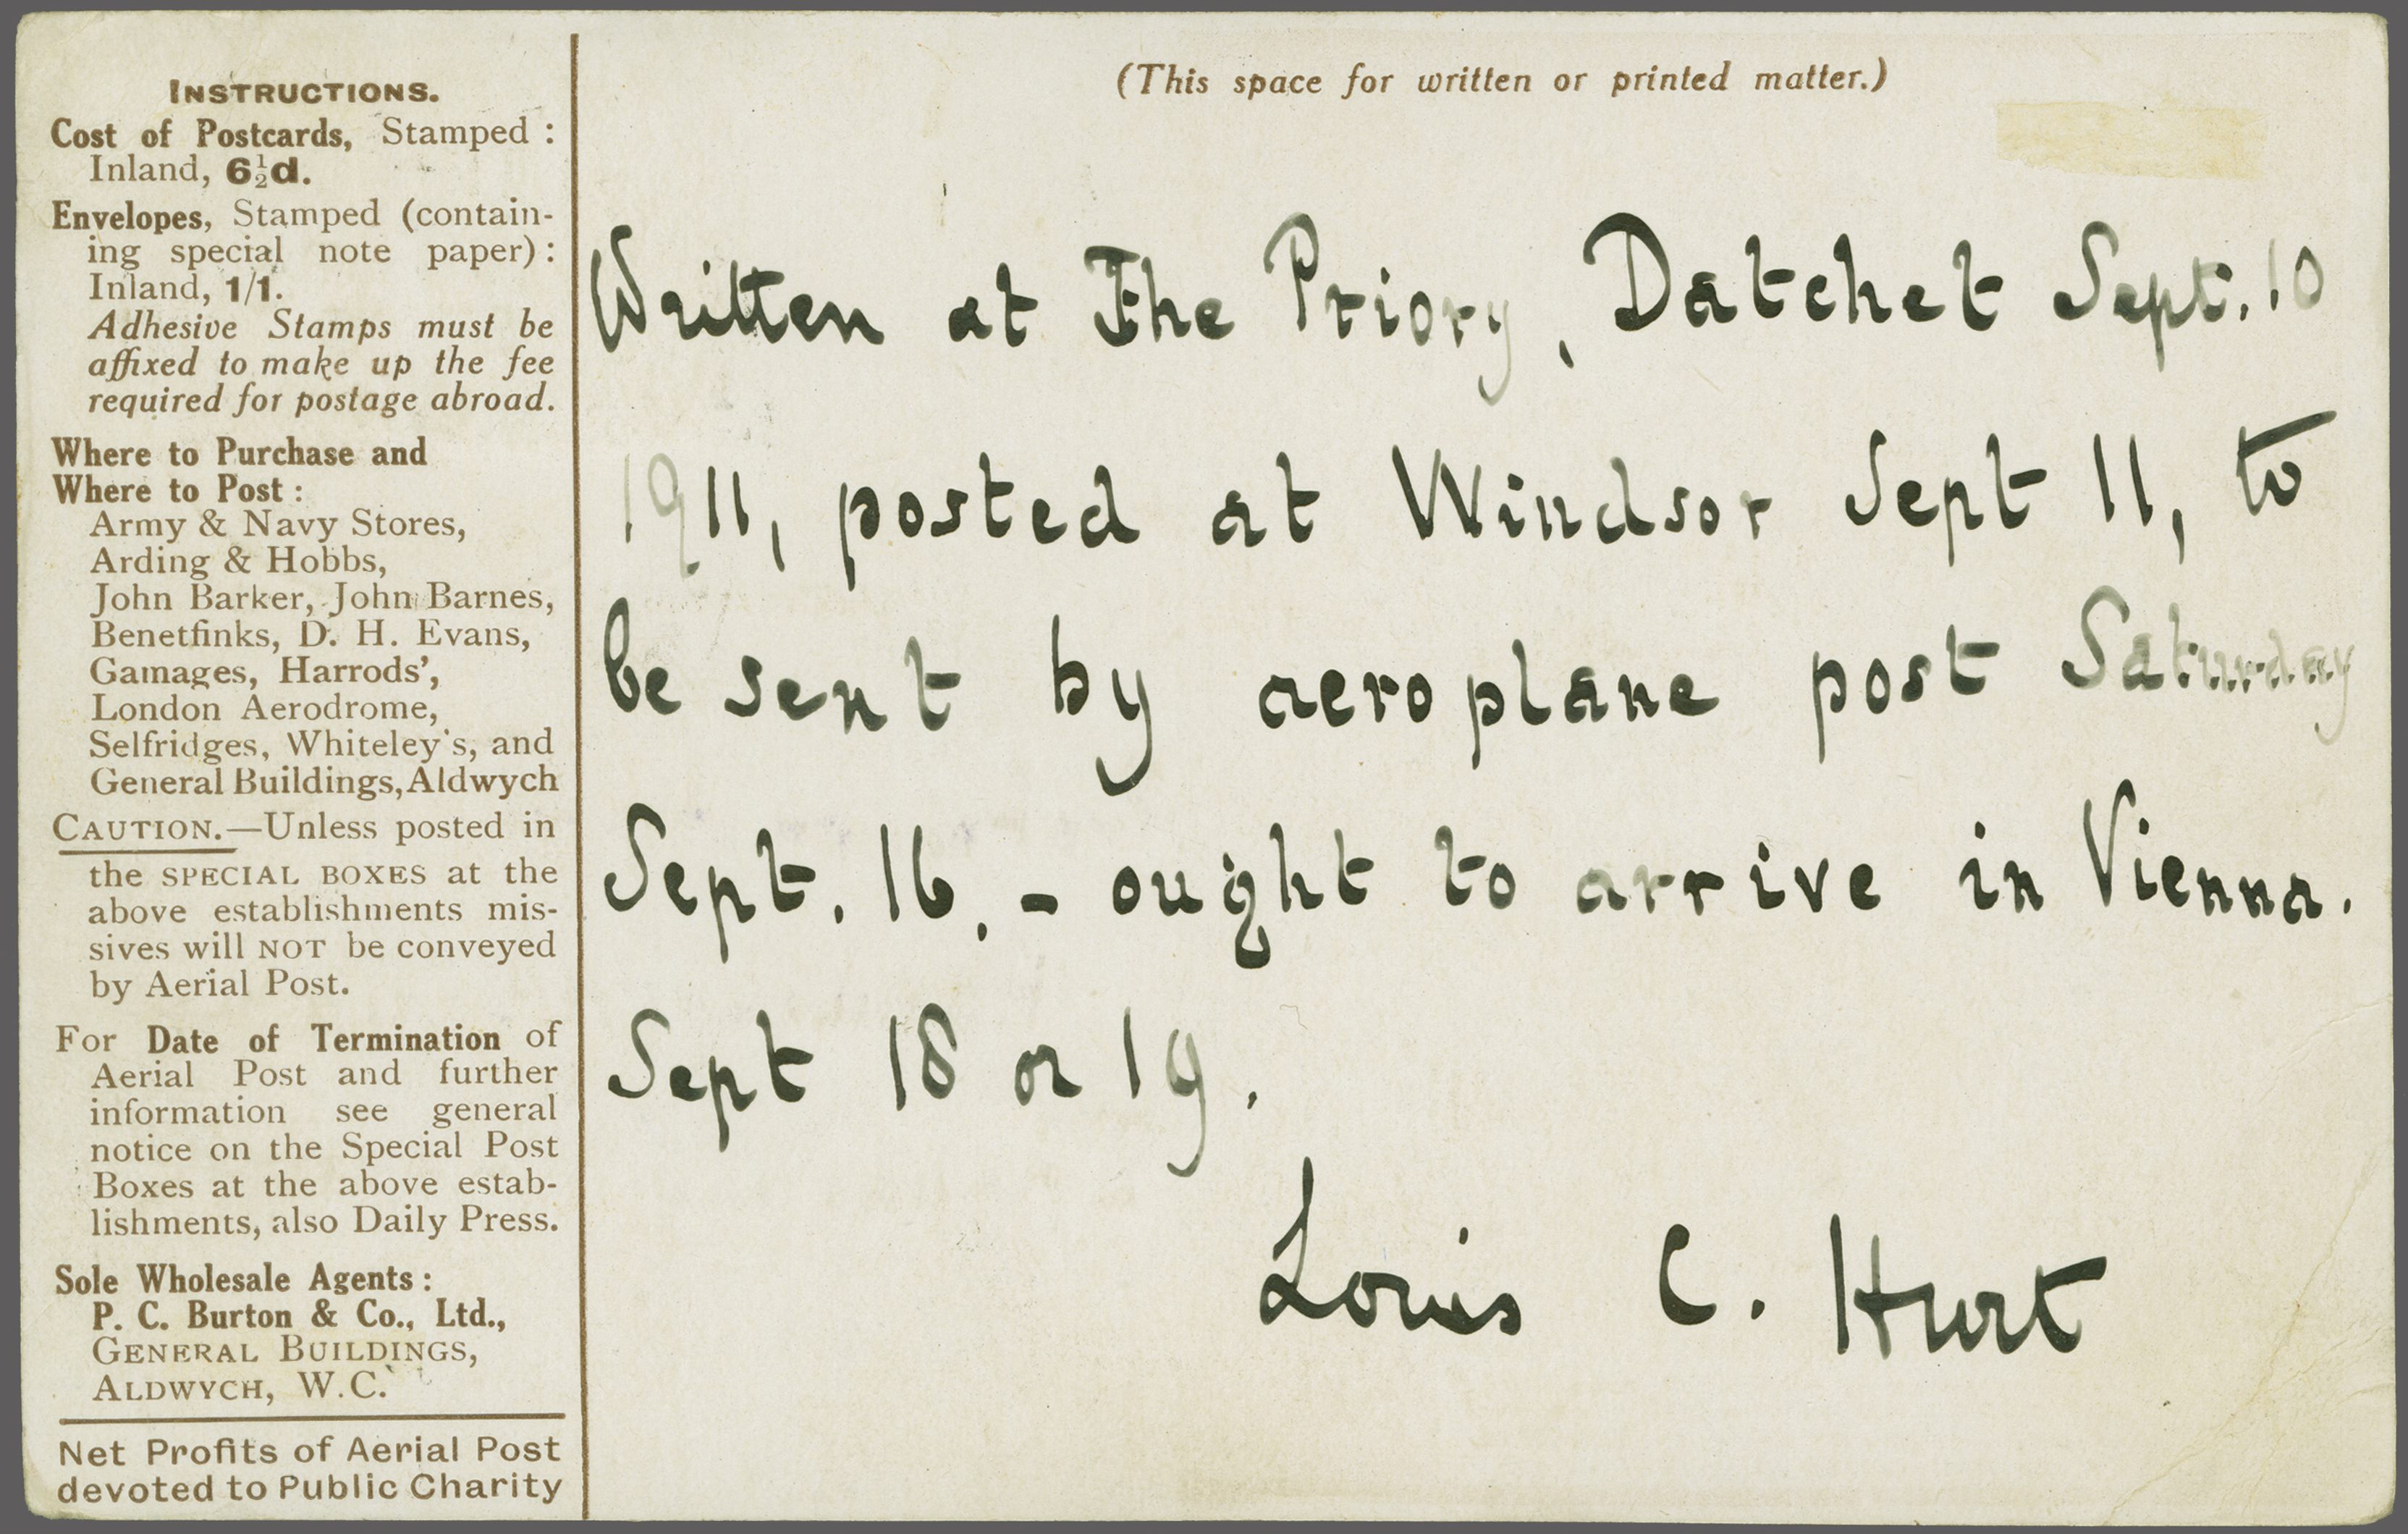 INSTRUCTIONS.
Cost of Postcards, Stamped :
Inland, 6½d.
Envelopes, Stamped (contain-
ing special note paper) :
Inland, 1/1.
Adhesive Stamps must be
affixed to make up the fee
required for postage abroad.
Where to Purchase and
Where to Post :
Army & Navy Stores,
Arding & Hobbs,
John Barker, John Barnes,
Benetfinks, D. H. Evans,
Gamages, Harrods',
London Aerodrome,
Selfridges, Whiteley's, and
General Buildings, Aldwych
CAUTION.—Unless posted in
the SPECIAL BOXES at the
above establishments mis-
sives will NOT be conveyed
by Aerial Post.
For Date of Termination of
Aerial Post and further
information see general
notice on the Special Post
Boxes at the above estab-
lishments, also Daily Press.
Sole Wholesale Agents :
P. C. Burton & Co., Ltd.,
GENERAL BUILDINGS,
ALDWYCH, W.C.
Net Profits of Aerial Post
devoted to Public Charity
(This space for written or printed matter.)
Written at The Priory, Datchet Sept. 10
1911, posted at Windsor Sept 11, to
be sent by aeroplane post Saturday
Sept. 16. - ought to arrive in Vienna.
Sept 18 or 19.
Louis C. Hurt